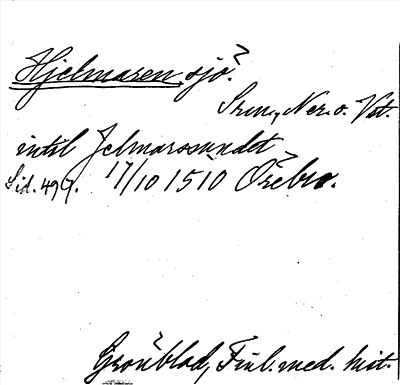 Hjelmaren, sjö.
Srm., Ner. o. Vst.
intil Jelmarssundet
Sid. 497. 17/10 1510 Örebro.
Grönblad, Finl. med. hist.